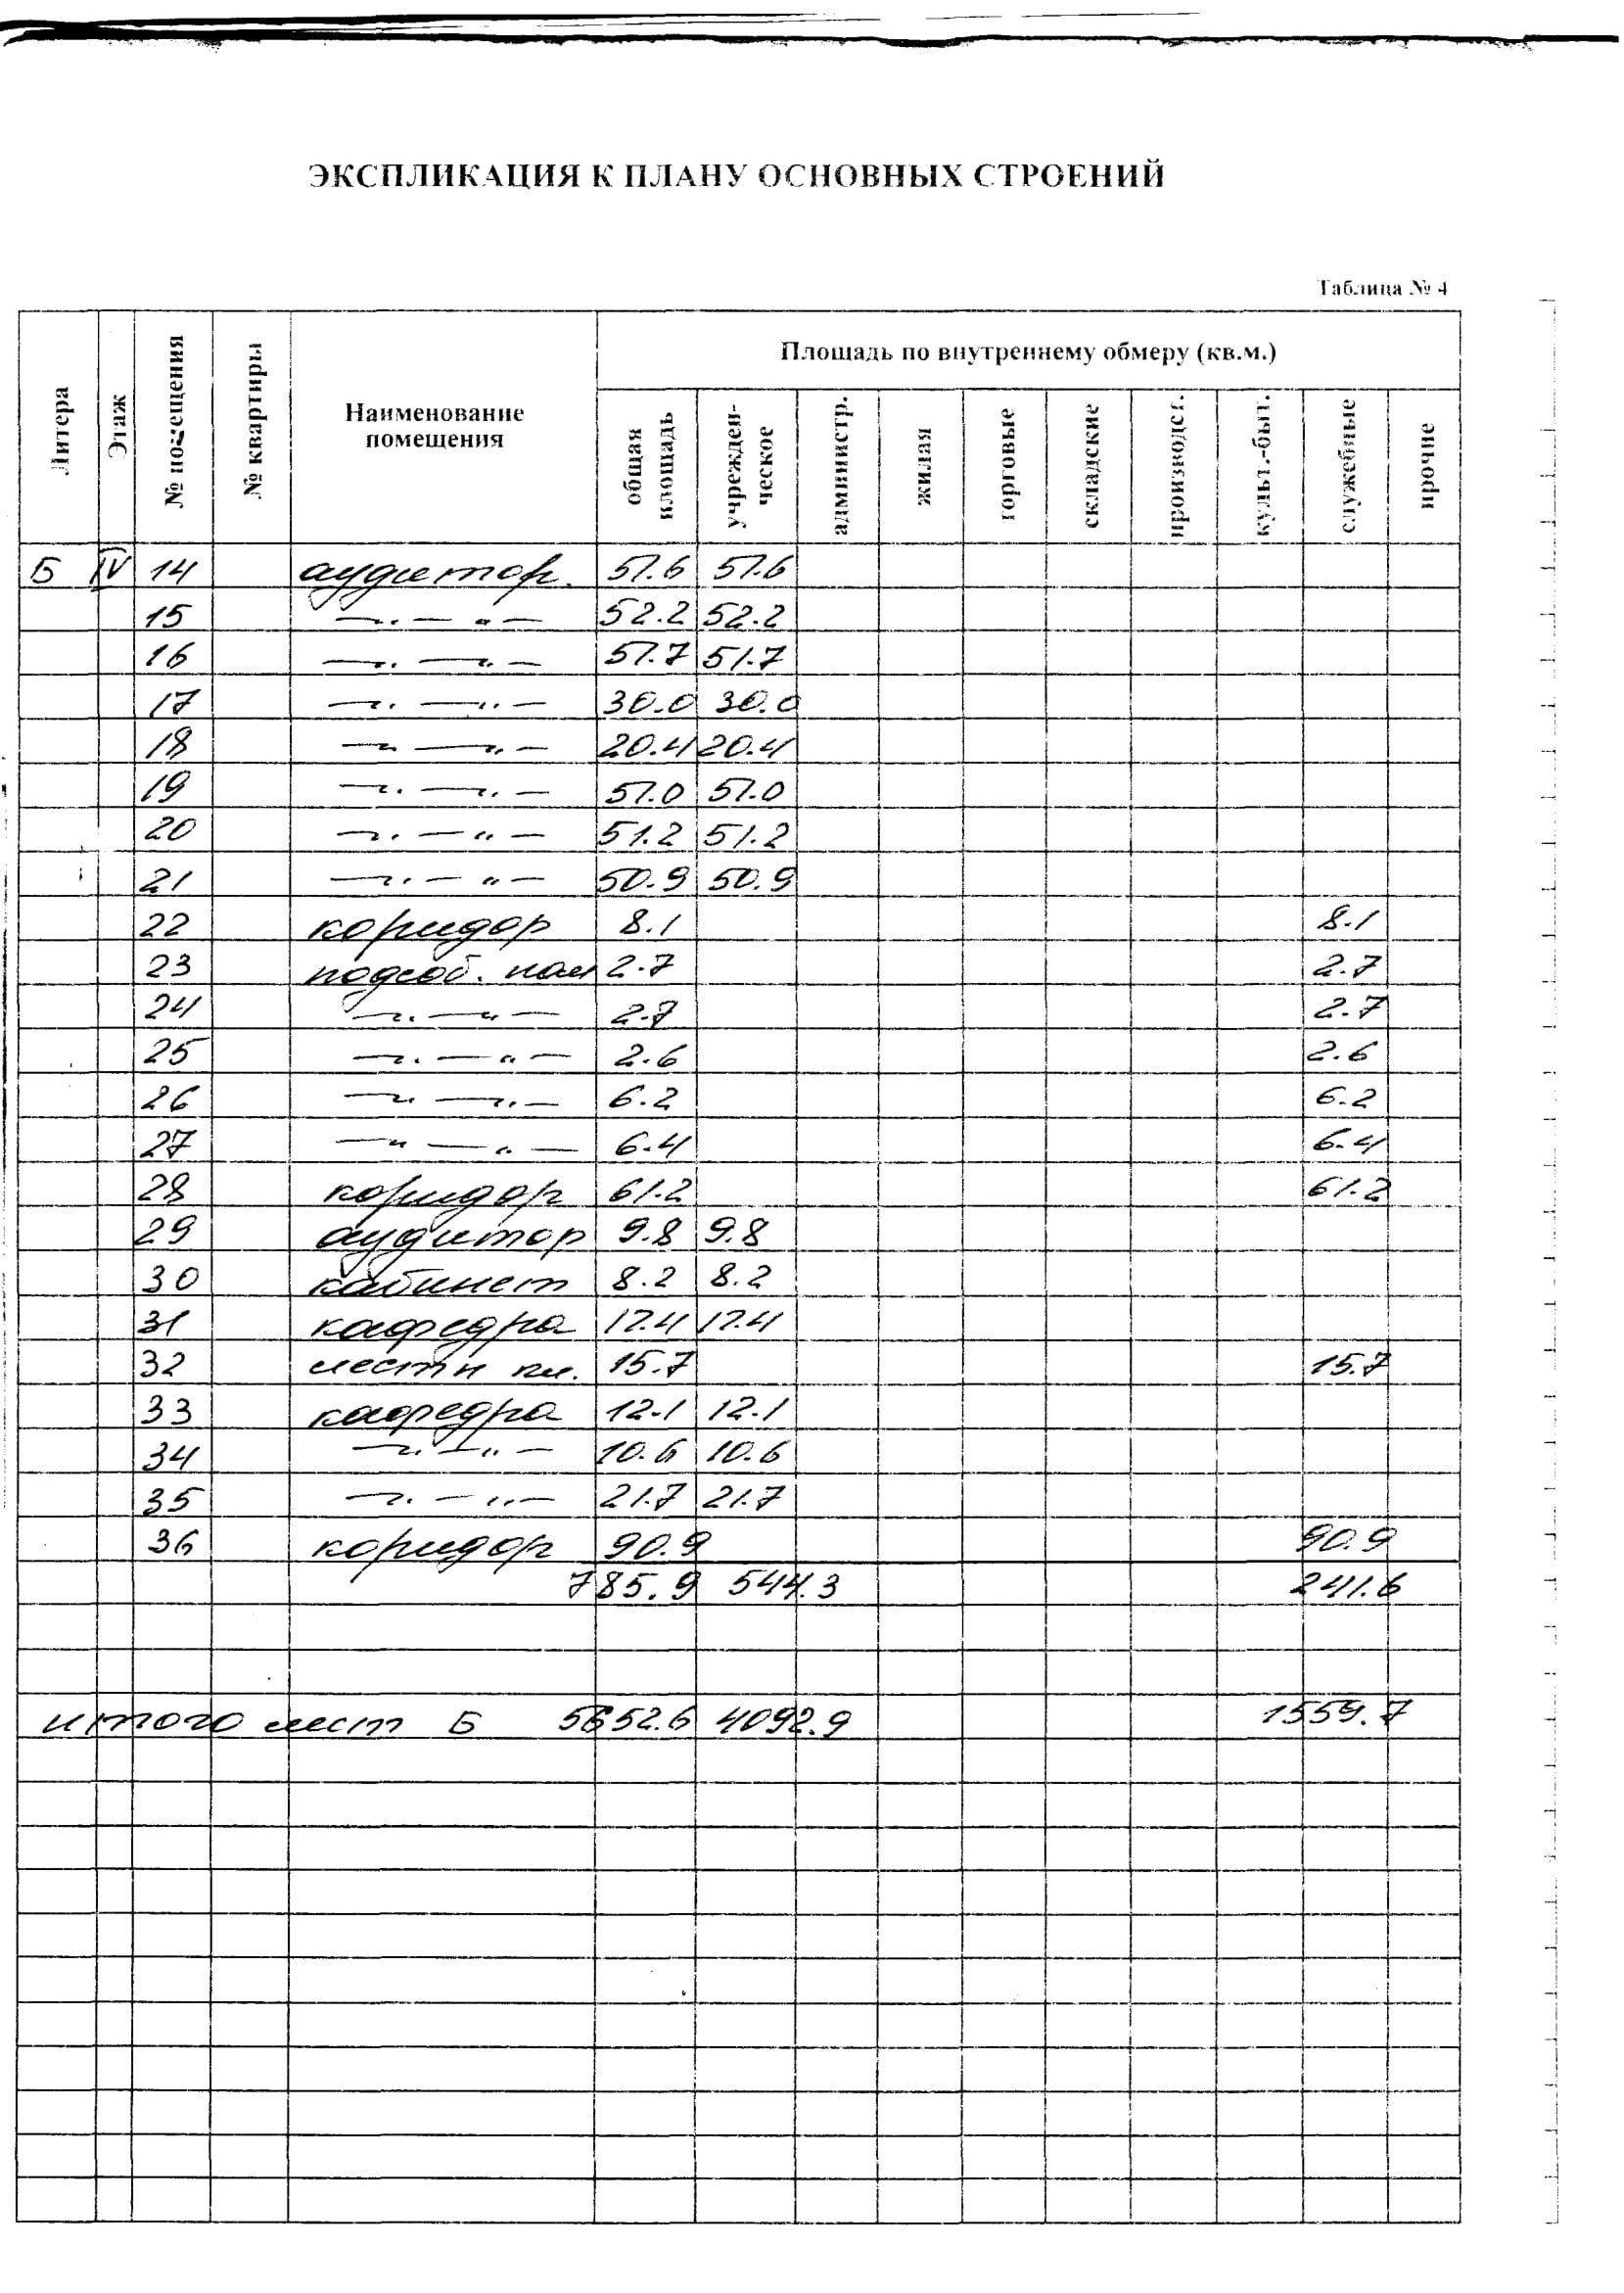 ЭКСПЛИКАЦИЯ К ПЛАНУ ОСНОВНЫХ СТРОЕНИЙ
Таблица № 4
Литера Этаж № помещения № квартиры Наименование помещения Площадь по внутреннему обмеру (кв.м.)
общая площадь учрежден-ческое администр. жилая торговые складские производст. культ.-быт. служебные прочие
Б IV 14 аудитор. 51.6 51.6
15 —〃—〃— 52.2 52.2
16 —〃—〃— 51.7 51.7
17 —〃—〃— 30.0 30.0
18 —〃—〃— 20.4 20.4
19 —〃—〃— 51.0 51.0
20 —〃—〃— 51.2 51.2
21 —〃—〃— 50.9 50.9
22 коридор 8.1 8.1
23 подсоб. пом 2.7 2.7
24 —〃—〃— 2.7 2.7
25 —〃—〃— 2.6 2.6
26 —〃—〃— 6.2 6.2
27 —〃—〃— 6.4 6.4
28 коридор 61.2 61.2
29 аудитор 9.8 9.8
30 кабинет 8.2 8.2
31 кафедра 17.4 17.4
32 лестн кл. 15.7 15.7
33 кафедра 12.1 12.1
34 —〃—〃— 10.6 10.6
35 —〃—〃— 21.7 21.7
36 коридор 90.9 90.9
785.9 544.3 241.6
итого лит Б 5652.6 4092.9 1559.7